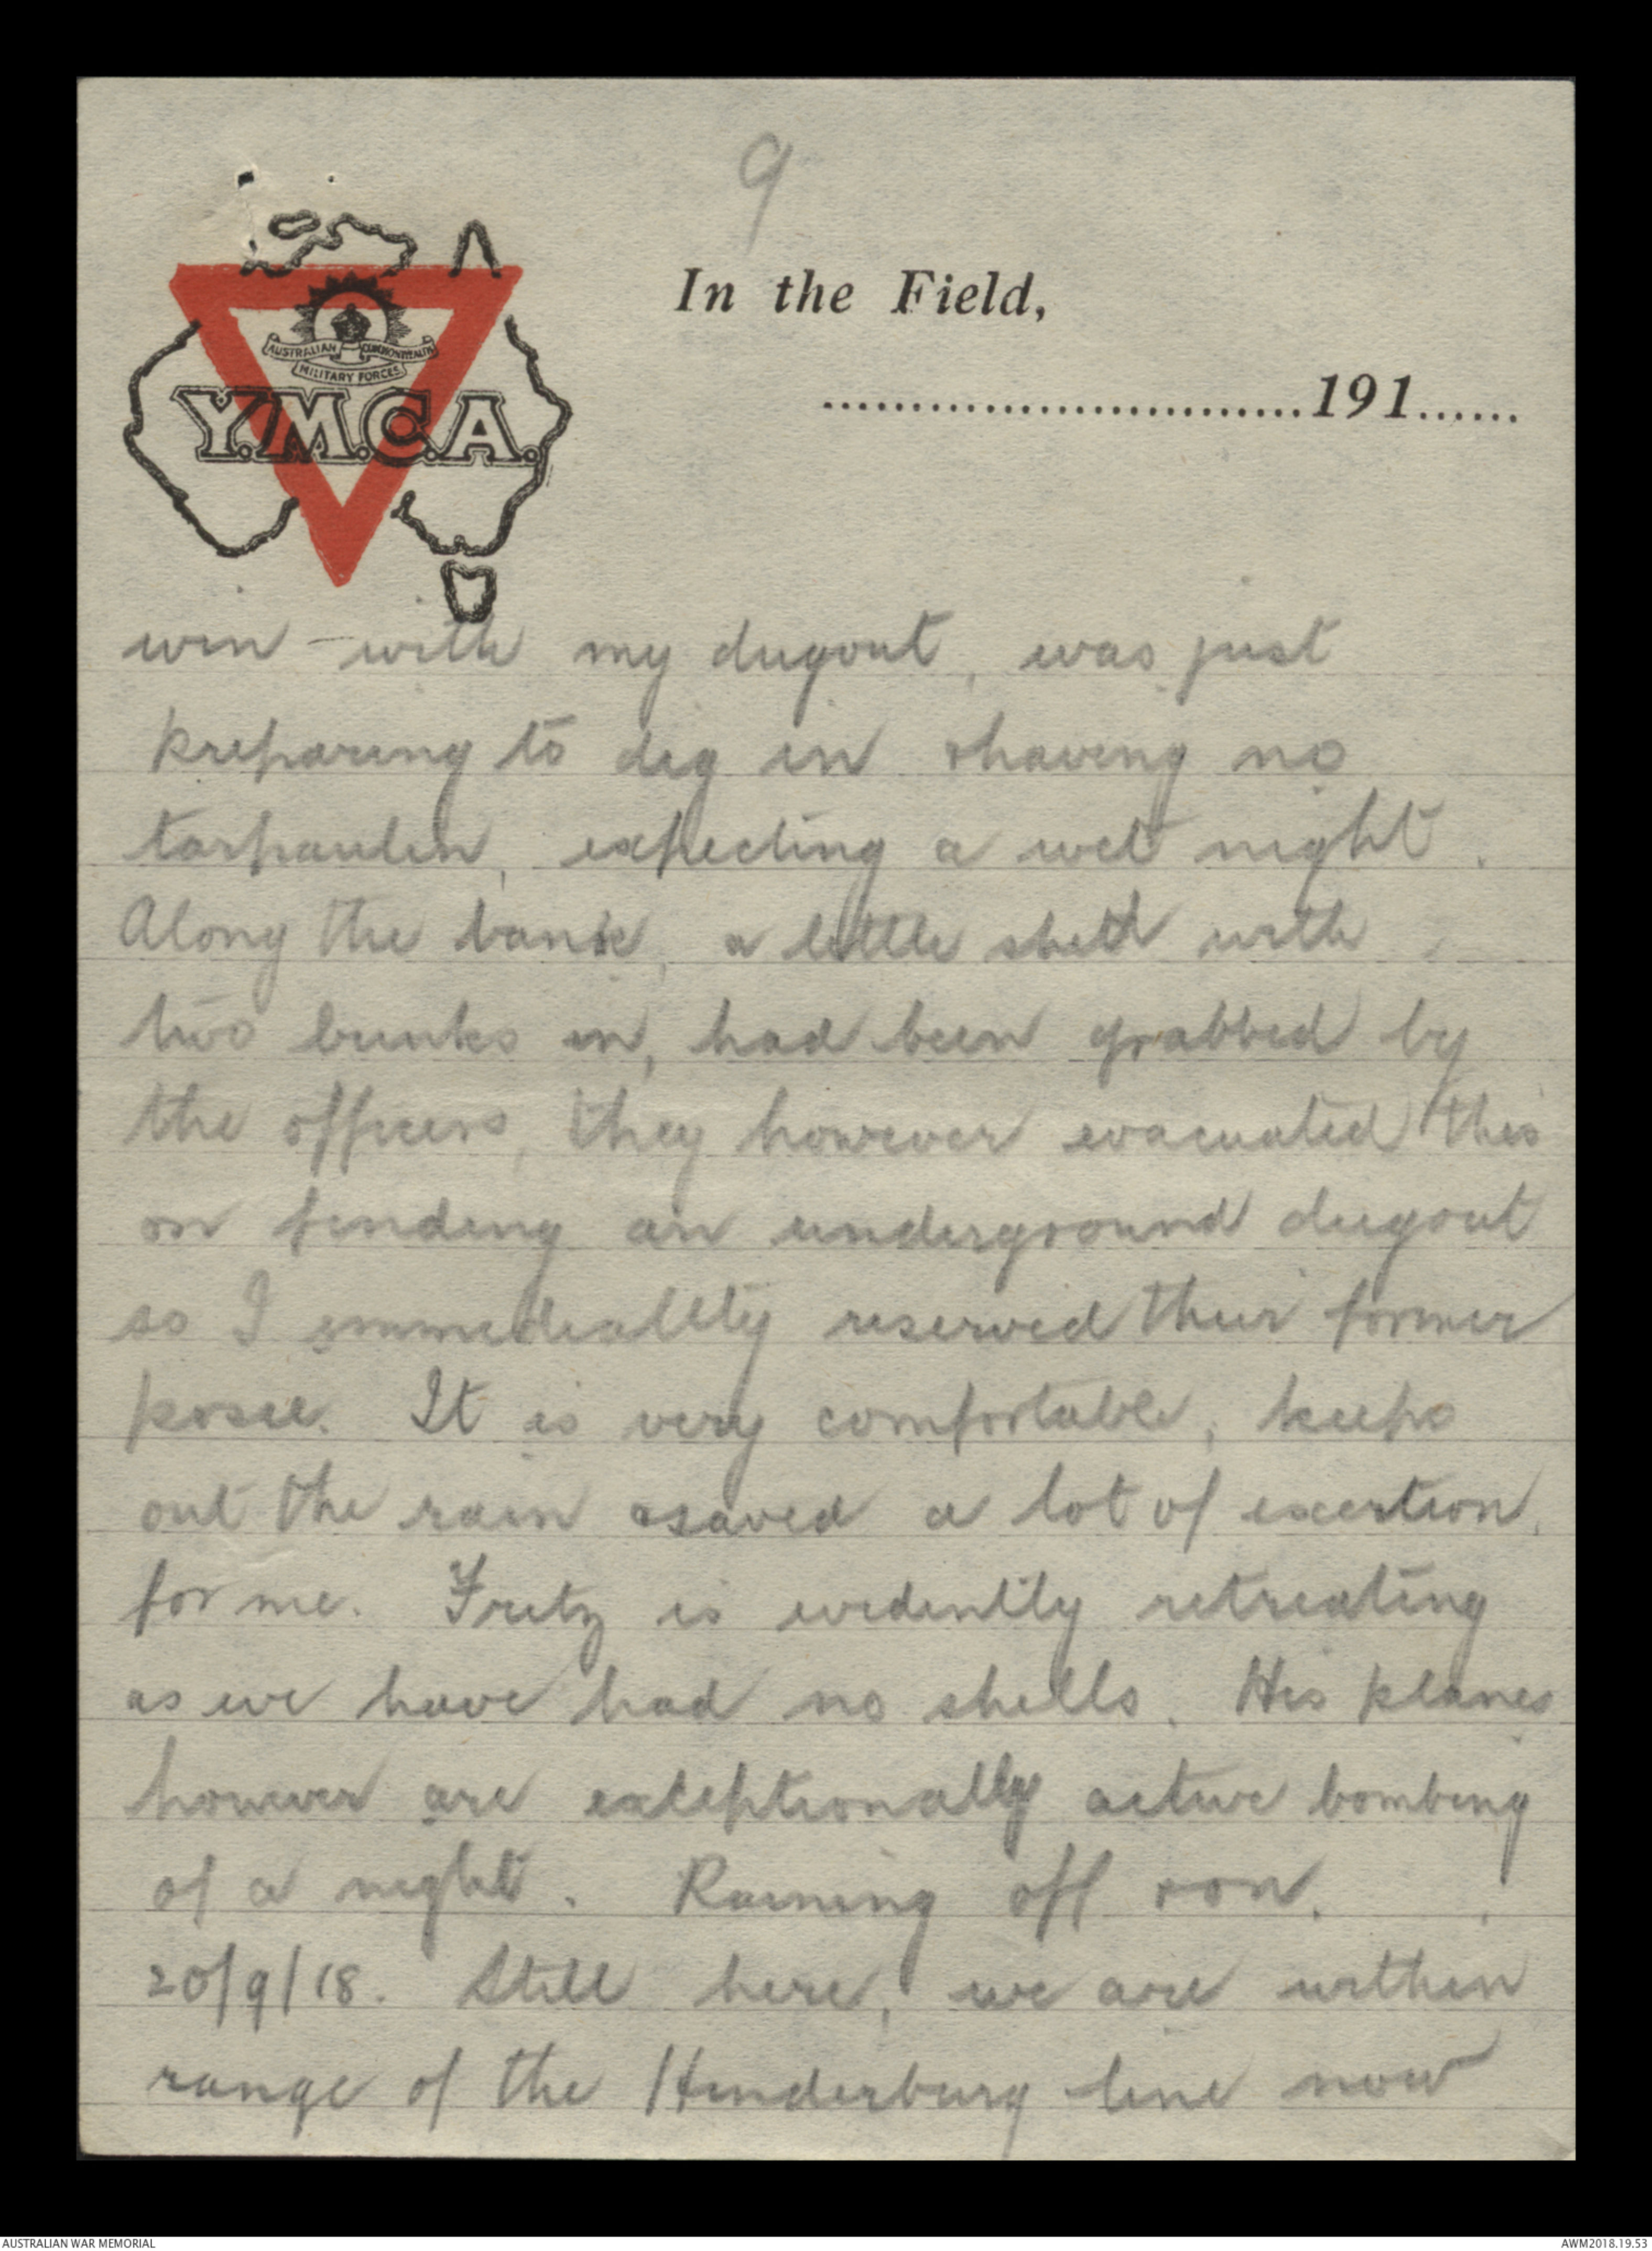 9
AUSTRALIAN COMMONWEALTH
MILITARY FORCES
Y.M.C.A.
In the Field,
..............................191......
win - with my dugout, was just
preparing to dig in & having no
tarpaulin, expecting a wet night.
Along the bank, a little shed with
two bunks in, had been grabbed by
the officers, they however evacuated this
on finding an underground dugout
so I immediatlely reserved their former
posie. It is very comfortable, keeps
out the rain & saved a lot of exertion
for me. Fritz is evidently retreating
as we have had no shells. His planes
however are exceptionally active bombing
of a night. Raining off & on.
20/9/18. Still here, we are within
range of the Hinderburg line now
AUSTRALIAN WAR MEMORIAL
AWM2018.19.53